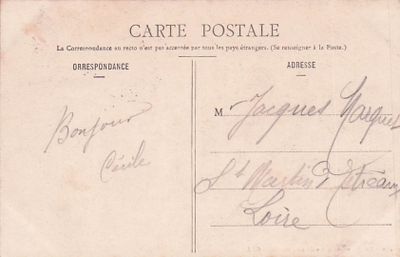 CARTE POSTALE
La Correspondance au recto n'est pas acceptée par tous les pays étrangers. (Se renseigner à la Poste.)
ORRESPONDANCE
ADRESSE
Bonjour
Cécile
M Jacques
St Martin d'Estréaux
Loire